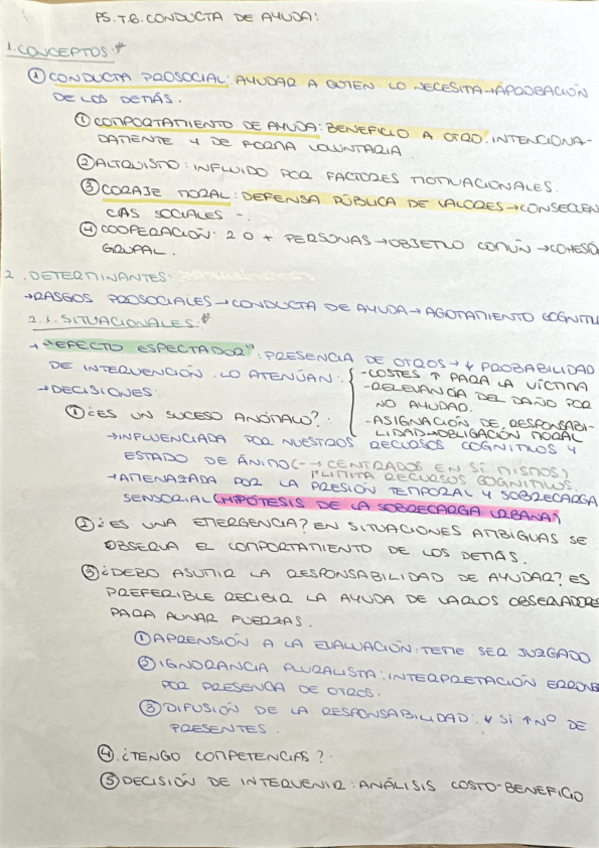 PS. T.6. CONDUCTA DE AYUDA:
1. CONCEPTOS:*
① CONDUCTA PROSOCIAL: AYUDAR A QUIEN LO NECESITA → APROBACIÓN
DE LOS DEMÁS.
① COMPORTAMIENTO DE AYUDA: BENEFICIO A OTRO. INTENCIONA-
DAMENTE Y DE FORMA VOLUNTARIA
② ALTRUISMO: INFLUIDO POR FACTORES MOTIVACIONALES.
③ CORAJE MORAL: DEFENSA PÚBLICA DE VALORES → CONSECUEN
CIAS SOCIALES -.
④ COOPERACIÓN: 2 O + PERSONAS → OBJETIVO COMÚN → COHESIÓ
GRUPAL.
2. DETERMINANTES:
→ RASGOS PROSOCIALES → CONDUCTA DE AYUDA → AGOTAMIENTO COGNITI
2.1. SITUACIONALES:*
→ "EFECTO ESPECTADOR": PRESENCIA DE OTROS → ↓ PROBABILIDAD
DE INTERVENCIÓN. LO ATENÚAN: { - COSTES ↑ PARA LA VÍCTIMA
- RELEVANCIA DEL DAÑO POR
NO AYUDAR.
- ASIGNACIÓN DE RESPONSABI-
LIDAD → OBLIGACIÓN MORAL
→ DECISIONES:
① ¿ES UN SUCESO ANÓMALO?:
→ INFLUENCIADA POR NUESTROS RECURSOS COGNITIVOS Y
ESTADO DE ÁNIMO (- → CENTRADOS EN SÍ MISMOS)
LIMITA RECURSOS COGNITIVOS.
→ AMENAZADA POR LA PRESIÓN TEMPORAL Y SOBRECARGA
SENSORIAL (HIPÓTESIS DE LA SOBRECARGA URBANA)
② ¿ES UNA EMERGENCIA? EN SITUACIONES AMBIGUAS SE
OBSERVA EL COMPORTAMIENTO DE LOS DEMÁS.
③ ¿DEBO ASUMIR LA RESPONSABILIDAD DE AYUDAR? ES
PREFERIBLE RECIBIR LA AYUDA DE VARIOS OBSERVADORES
PARA AUNAR FUERZAS.
① APRENSIÓN A LA EVALUACIÓN: TEME SER JUZGADO
② IGNORANCIA PLURALISTA: INTERPRETACIÓN ERRONE
POR PRESENCIA DE OTROS.
③ DIFUSIÓN DE LA RESPONSABILIDAD: ↓ SI ↑ Nº DE
PRESENTES.
④ ¿TENGO COMPETENCIAS?
⑤ DECISIÓN DE INTERVENIR: ANÁLISIS COSTO-BENEFICIO